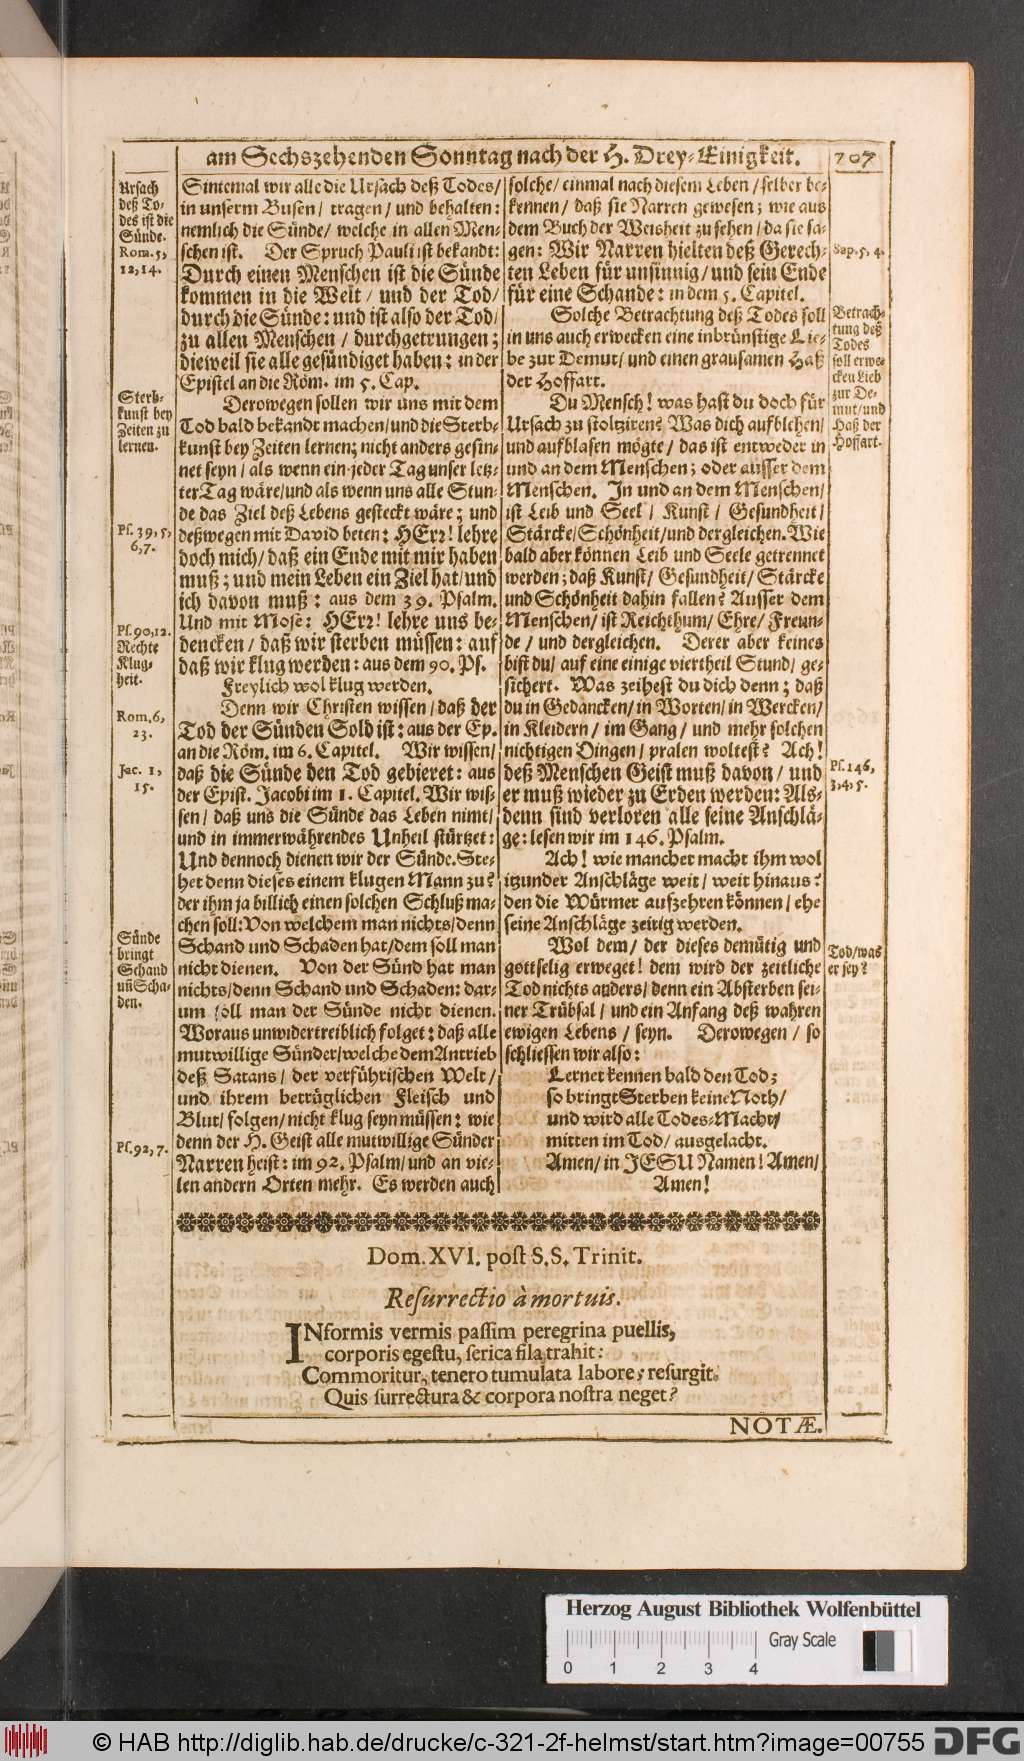 am Sechszehenden Sonntag nach der H. Drey-Einigkeit. 707
Ursach
deß To-
des ist die
Sünde.
Rom. 5,
12, 14.
Sterb-
kunst bey
Zeiten zu
lernen.
Ps. 39, 5,
6, 7.
Ps. 90, 12.
Rechte
Klug-
heit.
Rom. 6,
23.
Jac. 1,
15.
Sünde
bringt
Schand
uñ Scha-
den.
Ps. 92, 7.
Sintemal wir alle die Ursach deß Todes/
in unserm Busen/ tragen/ und behalten:
nemlich die Sünde/ welche in allen Men-
schen ist. Der Spruch Pauli ist bekandt:
Durch einen Menschen ist die Sünde
kommen in die Welt/ und der Tod/
durch die Sünde: und ist also der Tod/
zu allen Menschen/ durchgetrungen;
dieweil sie alle gesündiget haben: in der
Epistel an die Röm. im 5. Cap.
Derowegen sollen wir uns mit dem
Tod bald bekandt machen/ und die Sterb-
kunst bey Zeiten lernen; nicht anders gesin-
net seyn/ als wenn ein-jeder Tag unser letz-
ter Tag wäre/ und als wenn uns alle Stun-
de das Ziel deß Lebens gesteckt wäre; und
deßwegen mit David beten: HErr! lehre
doch mich/ daß ein Ende mit mir haben
muß; und mein Leben ein Ziel hat/ und
ich davon muß: aus dem 39. Psalm.
Und mit Mose: HErr! lehre uns be-
dencken/ daß wir sterben müssen: auf
daß wir klug werden: aus dem 90. Ps.
Freylich wol klug werden.
Denn wir Christen wissen/ daß der
Tod der Sünden Sold ist: aus der Ep.
an die Röm. im 6. Capitel. Wir wissen/
daß die Sünde den Tod gebieret: aus
der Epist. Jacobi im 1. Capitel. Wir wis-
sen/ daß uns die Sünde das Leben nimt/
und in immerwährendes Unheil stürtzet:
Und dennoch dienen wir der Sünde. Ste-
het denn dieses einem klugen Mann zu?
der ihm ja billich einen solchen Schluß ma-
chen soll: Von welchem man nichts/ denn
Schand und Schaden hat/ dem soll man
nicht dienen. Von der Sünd hat man
nichts/ denn Schand und Schaden: dar-
um soll man der Sünde nicht dienen.
Woraus unwidertreiblich folget: daß alle
mutwillige Sünder/ welche dem Antrieb
deß Satans/ der verführischen Welt/
und ihrem betrüglichen Fleisch und
Blut/ folgen/ nicht klug seyn müssen: wie
denn der H. Geist alle mutwillige Sünder
Narren heist: im 92. Psalm/ und an vie-
len andern Orten mehr. Es werden auch
solche/ einmal nach diesem Leben/ selber be-
kennen/ daß sie Narren gewesen; wie aus
dem Buch der Weisheit zu sehen/ da sie sa-
gen: Wir Narren hielten deß Gerech-
ten Leben für unsinnig/ und sein Ende
für eine Schande: in dem 5. Capitel.
Solche Betrachtung deß Todes soll
in uns auch erwecken eine inbrünstige Lie-
be zur Demut/ und einen grausamen Haß
der Hoffart.
Du Mensch! was hast du doch für
Ursach zu stoltziren? Was dich aufblehen/
und aufblasen mögte/ das ist entweder in
und an dem Menschen; oder ausser dem
Menschen. In und an dem Menschen/
ist Leib und Seel/ Kunst/ Gesundheit/
Stärcke/ Schönheit/ und dergleichen. Wie
bald aber können Leib und Seele getrennet
werden; daß Kunst/ Gesundheit/ Stärcke
und Schönheit dahin fallen? Ausser dem
Menschen/ ist Reichthum/ Ehre/ Freun-
de/ und dergleichen. Derer aber keines
bist du/ auf eine einige viertheil Stund/ ge-
sichert. Was zeihest du dich denn; daß
du in Gedancken/ in Worten/ in Wercken/
in Kleidern/ im Gang/ und mehr solchen
nichtigen Dingen/ pralen woltest? Ach!
deß Menschen Geist muß davon/ und
er muß wieder zu Erden werden: Als-
denn sind verloren alle seine Anschlä-
ge: lesen wir im 146. Psalm.
Ach! wie mancher macht ihm wol
itzunder Anschläge weit/ weit hinaus?
den die Würmer aufzehren können/ ehe
seine Anschläge zeitig werden.
Wol dem/ der dieses demütig und
gottselig erweget! dem wird der zeitliche
Tod nichts anders/ denn ein Absterben sei-
ner Trübsal/ und ein Anfang deß wahren
ewigen Lebens/ seyn. Derowegen/ so
schliessen wir also:
Lernet kennen bald den Tod;
so bringt Sterben keine Noth/
und wird alle Todes-Macht/
mitten im Tod/ ausgelacht.
Amen/ in JESU Namen! Amen/
Amen!
Sap. 5, 4.
Betrach-
tung deß
Todes
soll erwe-
cken Lieb
zur De-
mut/ und
Haß der
Hoffart.
Ps. 146,
3, 4, 5.
Tod/ was
er sey?
Dom. XVI. post S.S. Trinit.
Resurrectio à mortuis.
INformis vermis passim peregrina puellis,
corporis egestu, serica fila trahit:
Commoritur, tenero tumulata labore; resurgit.
Quis surrectura & corpora nostra neget?
NOTÆ.
Herzog August Bibliothek Wolfenbüttel
Gray Scale
0 1 2 3 4
© HAB http://diglib.hab.de/drucke/c-321-2f-helmst/start.htm?image=00755 DFG